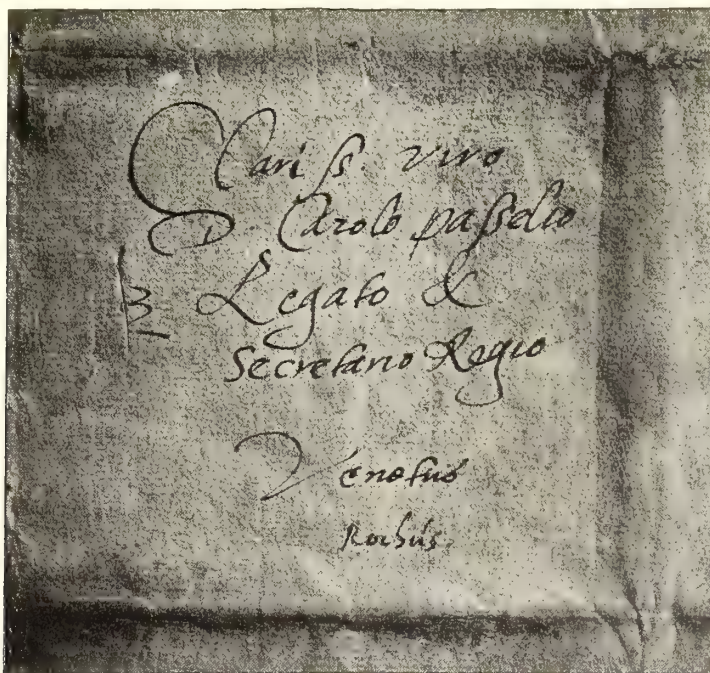 Clariss. viro
D. Carolo passelio
Legato &
Secretario Regio
Venetiis